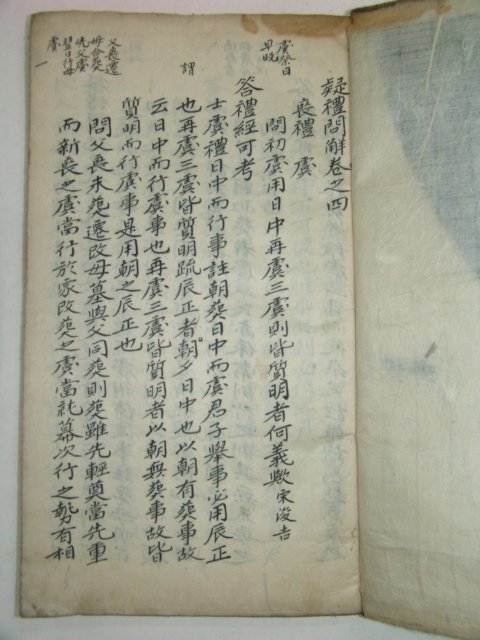 疑禮問解卷之四
喪禮 虞
虞祭日
早晚
問初虞用日中再虞三虞則皆質明者何義歟宋浚吉
答禮經可考
士虞禮日中而行事註朝葬日中而虞君子擧事必用辰正
謂
也再虞三虞皆質明疏辰正者朝夕日中也以朝有葬事故
云日中而行虞事也再虞三虞皆質明者以朝無葬事故皆
質明而行虞事是用朝之辰正也
父喪遷
母合葬
先父虞
翌日行母
虞
問父喪未葬遷改母墓與父同葬則葬雖先輕奠當先重
而新喪之虞當行於家改葬之虞當就幕次行之勢有相